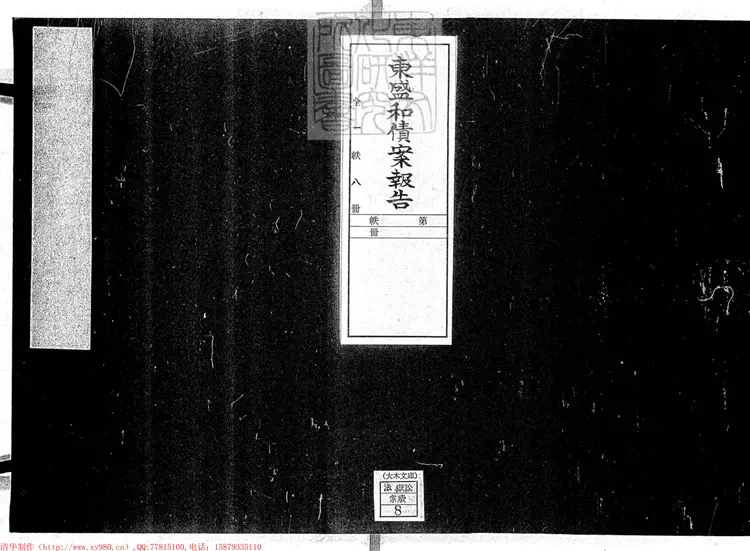 東盛和債案報告
全一帙八冊
第
帙
冊
(大木文庫)
法 獄訟
8
清华制作(http://www.xy980.cn),QQ:77815100,电话:15879335110